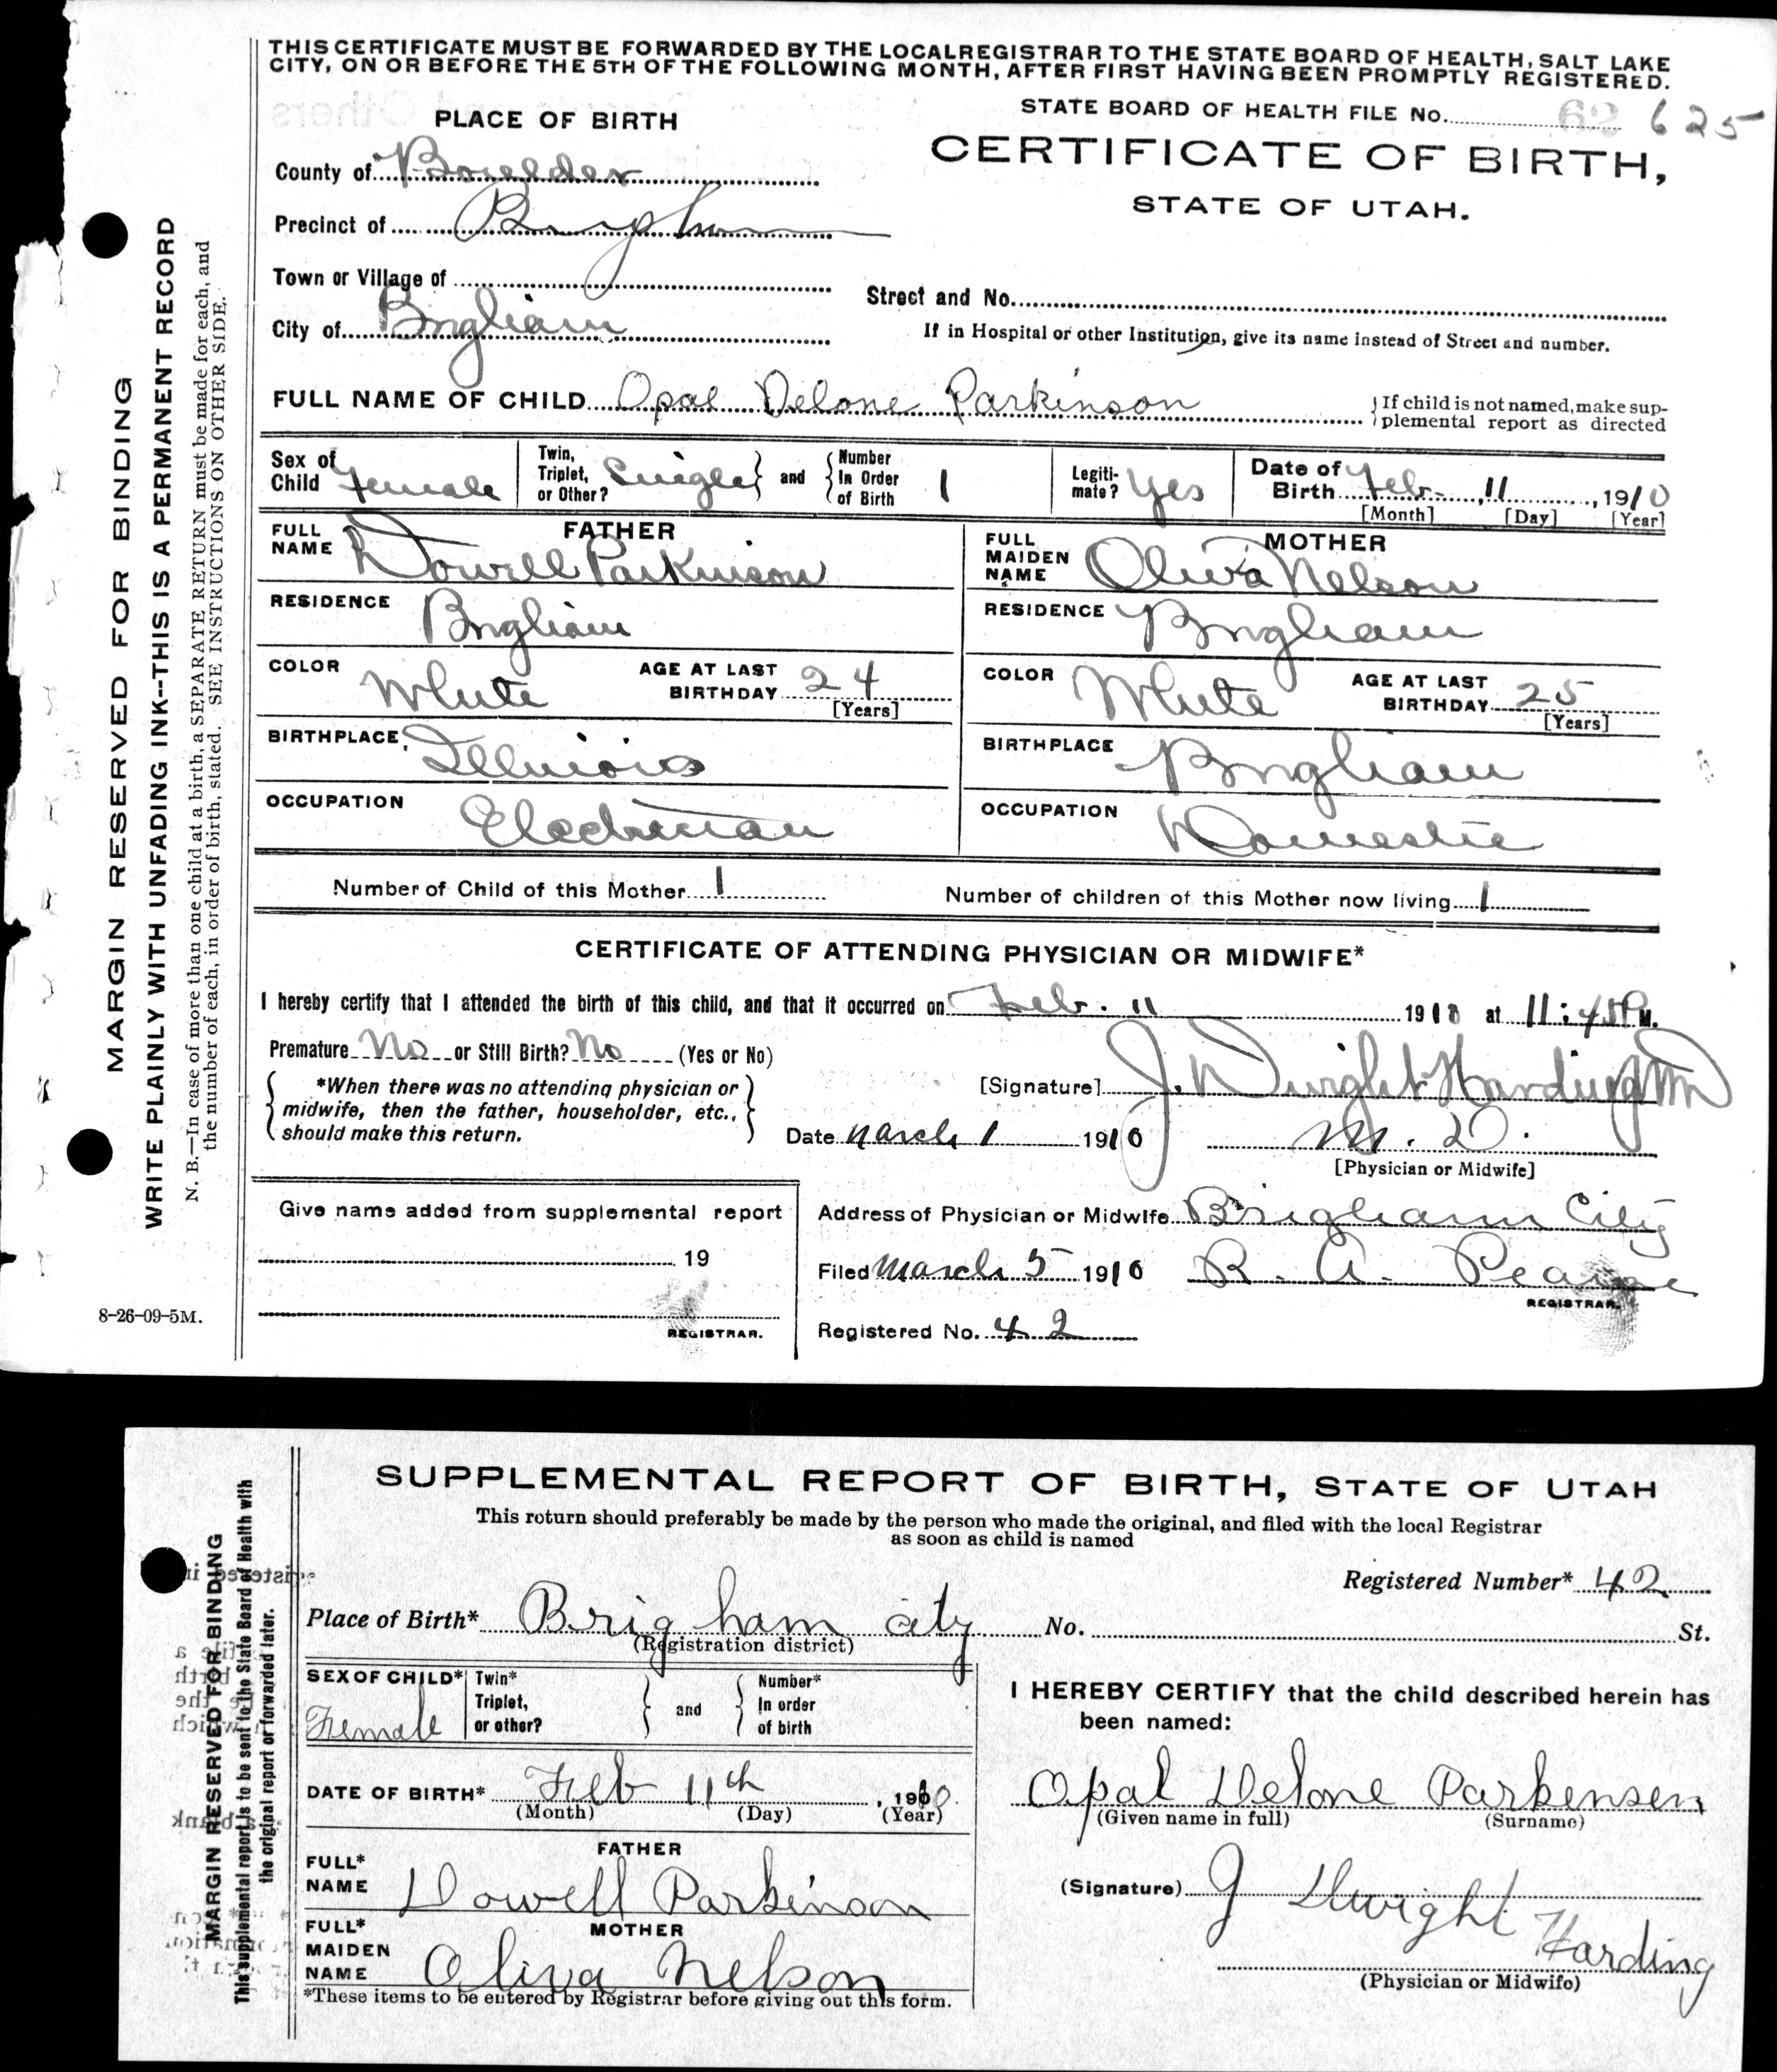 THIS CERTIFICATE MUST BE FORWARDED BY THE LOCAL REGISTRAR TO THE STATE BOARD OF HEALTH, SALT LAKE
CITY, ON OR BEFORE THE 5TH OF THE FOLLOWING MONTH, AFTER FIRST HAVING BEEN PROMPTLY REGISTERED.
STATE BOARD OF HEALTH FILE No. 62 625
PLACE OF BIRTH
CERTIFICATE OF BIRTH,
STATE OF UTAH.
County of Boxelder
Precinct of Brigham
Town or Village of
Street and No.
City of Brigham
If in Hospital or other Institution, give its name instead of Street and number.
FULL NAME OF CHILD Opal Delone Parkinson
If child is not named, make sup-
plemental report as directed
Sex of Child Female
Twin, Triplet, or Other? Single and Number In Order of Birth 1
Legiti-mate? Yes
Date of Birth Feb. 11, 1910
[Month] [Day] [Year]
FATHER
FULL NAME Dowell Parkinson
RESIDENCE Brigham
COLOR White AGE AT LAST BIRTHDAY 24
[Years]
BIRTHPLACE Illinois
OCCUPATION Electrician
MOTHER
FULL MAIDEN NAME Oliva Nelson
RESIDENCE Brigham
COLOR White AGE AT LAST BIRTHDAY 25
[Years]
BIRTHPLACE Brigham
OCCUPATION Domestic
Number of Child of this Mother 1 Number of children of this Mother now living 1
CERTIFICATE OF ATTENDING PHYSICIAN OR MIDWIFE*
I hereby certify that I attended the birth of this child, and that it occurred on Feb. 11 1910 at 11:45 P M.
Premature No or Still Birth? No (Yes or No)
*When there was no attending physician or
midwife, then the father, householder, etc.,
should make this return.
[Signature] J. Dwight Harding MD
Date March 1 1910 M. D.
[Physician or Midwife]
Give name added from supplemental report
19
REGISTRAR.
Address of Physician or Midwife Brigham City
Filed March 5 1910 R. A. Pearse
REGISTRAR.
Registered No. 42
8-26-09-5M.
MARGIN RESERVED FOR BINDING
WRITE PLAINLY WITH UNFADING INK--THIS IS A PERMANENT RECORD
N. B.—In case of more than one child at a birth, a SEPARATE RETURN must be made for each, and
the number of each, in order of birth, stated. SEE INSTRUCTIONS ON OTHER SIDE.
SUPPLEMENTAL REPORT OF BIRTH, STATE OF UTAH
This return should preferably be made by the person who made the original, and filed with the local Registrar
as soon as child is named
Registered Number* 42
Place of Birth* Brigham city No. St.
(Registration district)
SEX OF CHILD* Female
Twin* Triplet, or other? and Number* In order of birth
DATE OF BIRTH* Feb 11th, 1910
(Month) (Day) (Year)
FATHER
FULL* NAME Dowell Parkinson
MOTHER
FULL* MAIDEN NAME Oliva Nelson
*These items to be entered by Registrar before giving out this form.
I HEREBY CERTIFY that the child described herein has
been named:
Opal Delone Parkensen
(Given name in full) (Surname)
(Signature) J Dwight Harding
(Physician or Midwife)
MARGIN RESERVED FOR BINDING
This supplemental report is to be sent to the State Board of Health with
the original report or forwarded later.